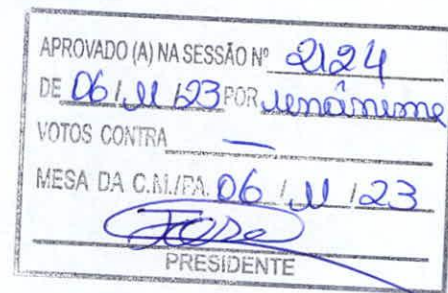 APROVADO (A) NA SESSÃO Nº 2124
DE 06/11/23 POR unânime
VOTOS CONTRA —
MESA DA C.M./PA. 06/11/23
PRESIDENTE